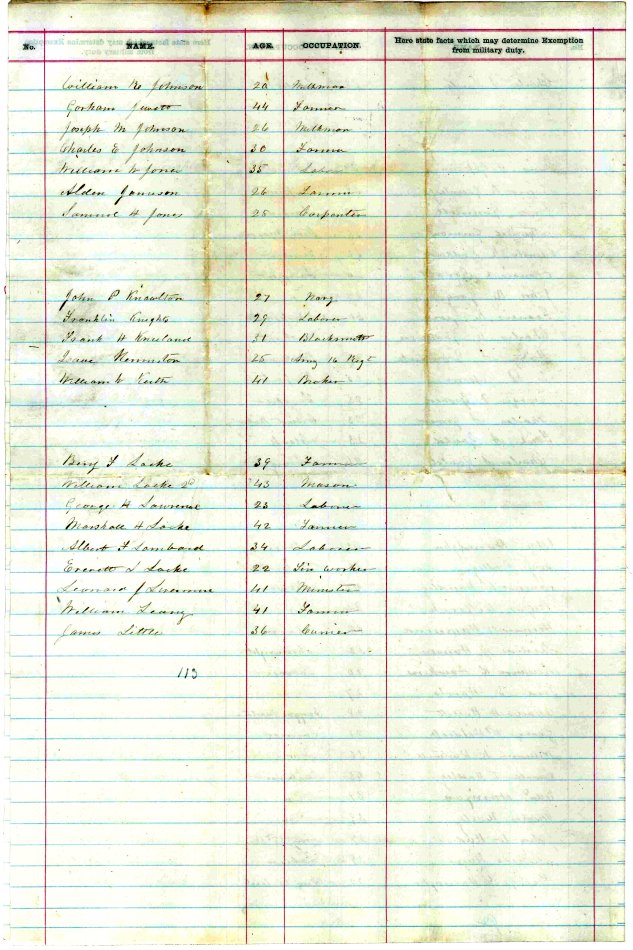 No. NAME. AGE. OCCUPATION. Here state facts which may determine Exemption
from military duty.
William R Johnson 20 Milkman
Gorham Jewett 44 Farmer
Joseph M Johnson 26 Milkman
Charles E Johnson 30 Farmer
William W Jones 35
Alden Jameson 26
Samuel H Jones 25 Carpenter
John P Knowlton 27 Navy
Franklin Knights 29 Laborer
Frank H Kneeland 31 Blacksmith
Isaac Kenniston 25 Army 16 Regt
William W Keith 41 Broker
Benj F Locke 39 Farmer
William Locke 2d 43 Mason
George H Lawrence 23 Laborer
Marshall H Locke 42 Farmer
Albert F Lombard 34 Laborer
Everett S Locke 22 Tin worker
Leonard J Livermore 41 Minister
William Leary 41 Farmer
James Little 36 Currier
113